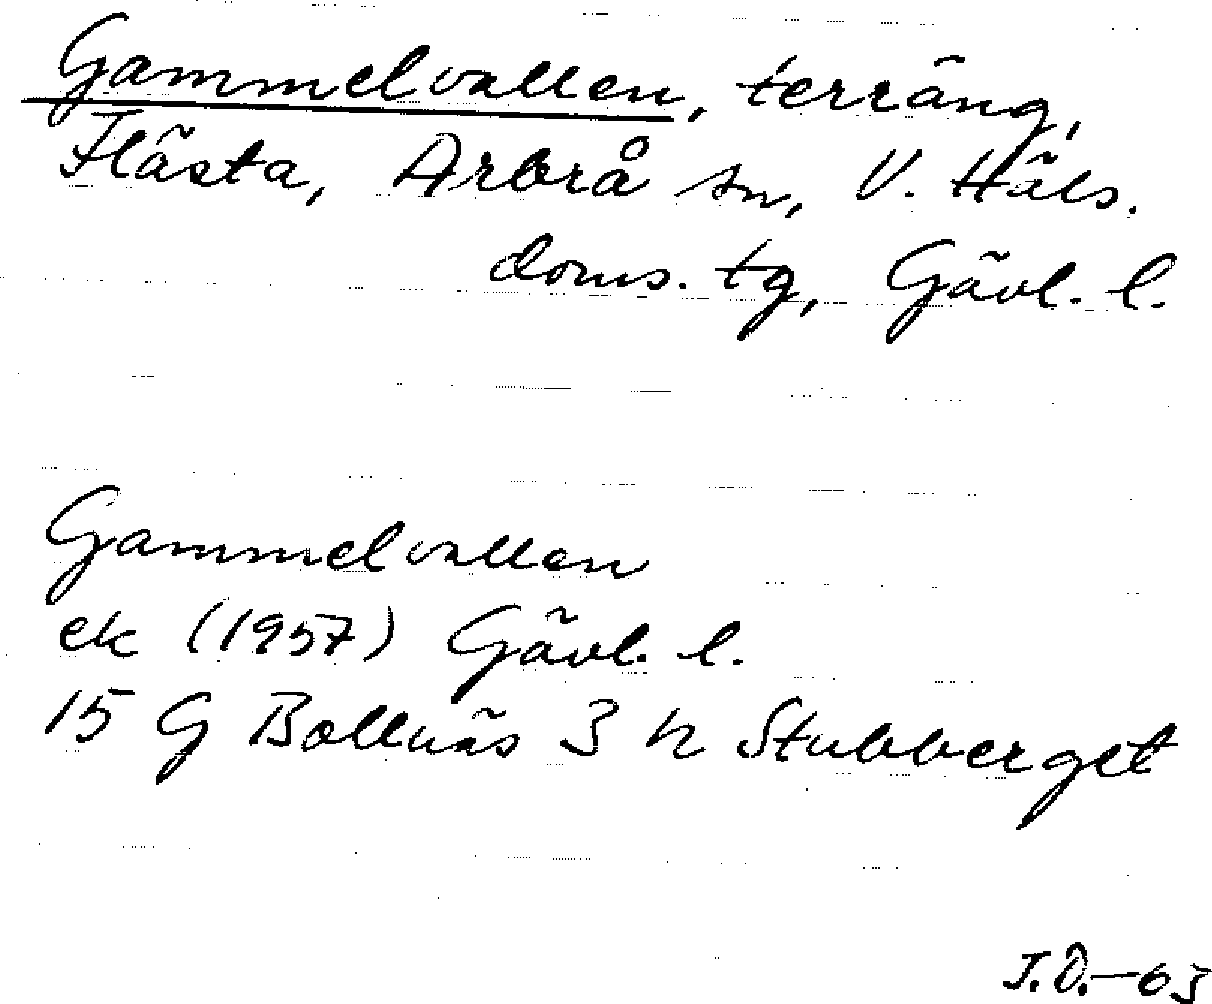 Gammelvallen, terräng,
Flästa, Arbrå sn, V. Häls.
doms. tg, Gävl. l.
Gammelvallen
ek (1957) Gävl. l.
15 G Bollnäs 3 h Stubberget
J.Ö.—63